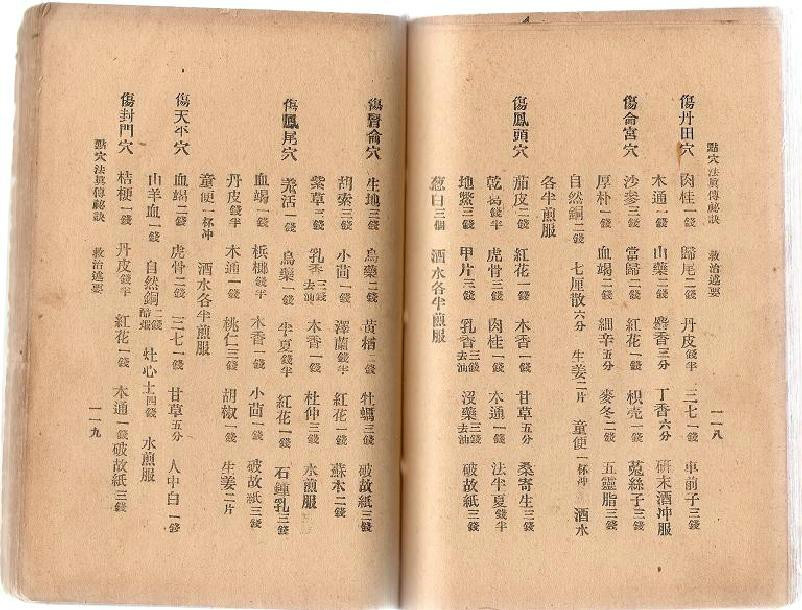 點穴法眞傳秘訣 救治述要 一一八
傷丹田穴 肉桂一錢 歸尾二錢 丹皮錢半 三七一錢 車前子三錢
木通一錢 山藥二錢 麝香三分 丁香六分 研末酒沖服
傷侖宮穴 沙參三錢 當歸二錢 紅花一錢 枳壳一錢 菟絲子三錢
厚朴一錢 血竭二錢 細辛五分 麥冬二錢 五靈脂三錢
自然銅二錢 七厘散六分 生姜二片 童便一杯沖 酒水
各半煎服
傷鳳頭穴 茄皮二錢 紅花一錢 木香一錢 甘草五分 桑寄生三錢
乾葛錢半 虎骨三錢 肉桂一錢 木通一錢 法半夏錢半
地鱉三錢 甲片三錢 乳香三錢去油 沒藥三錢去油 破故紙三錢
葱白三個 酒水各半煎服
傷腎侖穴 生地三錢 烏藥二錢 黃柏二錢 牡蠣三錢 破故紙三錢
胡索三錢 小茴一錢 澤蘭錢半 紅花一錢 蘇木二錢
紫草三錢 乳香三錢去油 木香一錢 杜仲三錢 水煎服
傷鳳尾穴 羗活一錢 烏藥一錢 半夏錢半 紅花一錢 石鐘乳三錢
血竭一錢 梹榔錢半 木香一錢 小茴一錢 破故紙三錢
丹皮錢半 木通一錢 桃仁三錢 胡椒一錢 生姜二片
童便一杯沖 酒水各半煎服
傷天平穴 血竭二錢 虎骨二錢 三七一錢 甘草五分 人中白一錢
山羊血一錢 自然銅二錢醋 灶心土四錢 水煎服
傷封門穴 桔梗一錢 丹皮錢半 紅花一錢 木通一錢 破故紙三錢
點穴法眞傳秘訣 救治述要 一一九